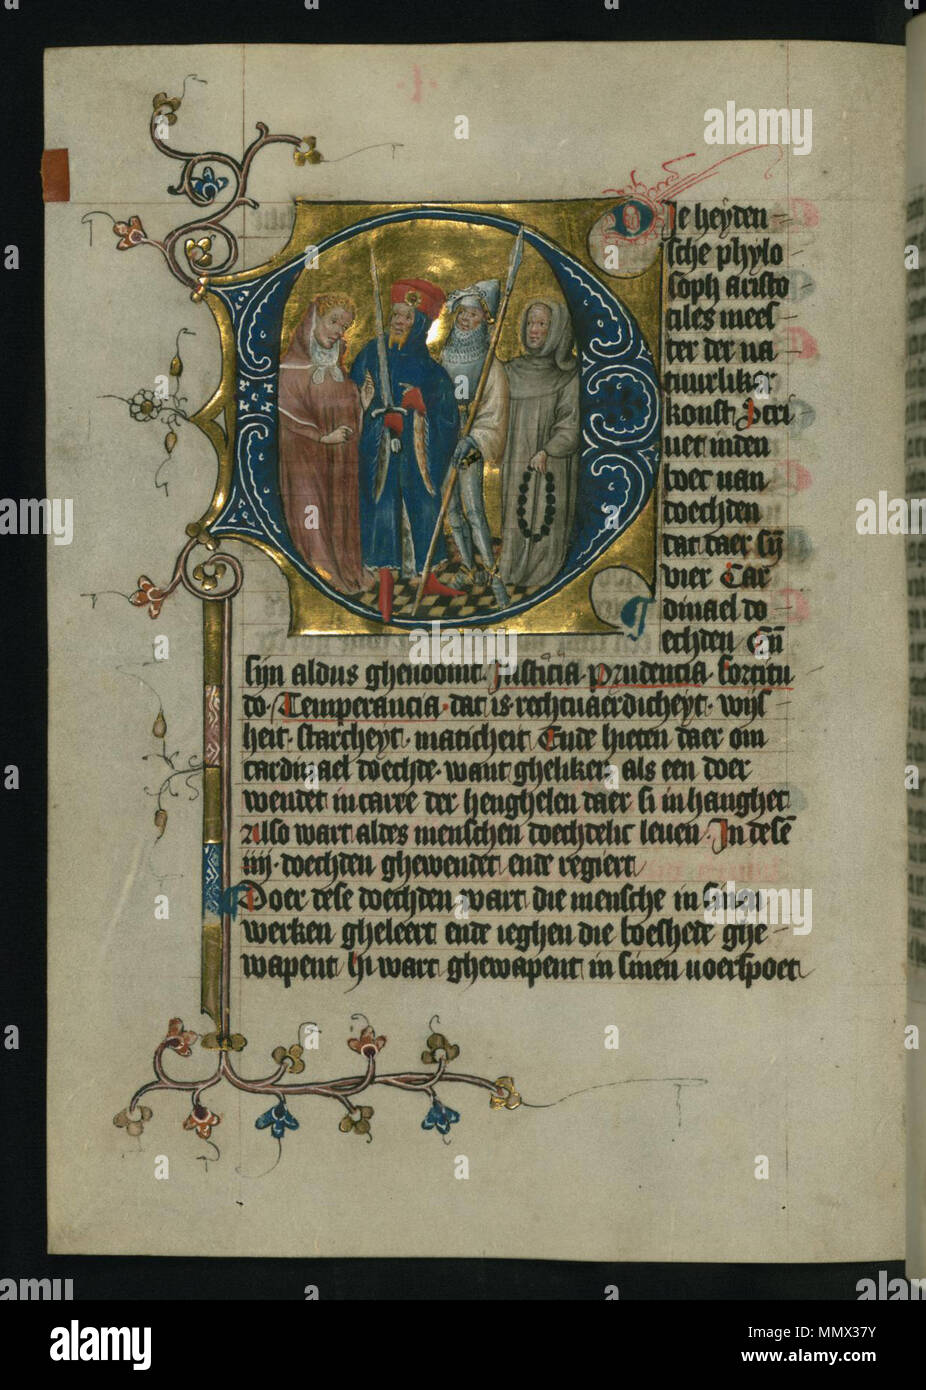 Die heyden-
sche phylo
soph aristo
tiles mees-
ter der na
tuurliker
konst Scri
uet inden
boec uan
doechden
dat daer syn
vier Car
dinael do
echden En
sijn aldus ghenoomt. Justicia. prudencia. fortitu
do. Temperancia. dat is. rechtuaerdicheyt. wijs
heit. starcheyt. maticheit Ende hieten daer om
cardinael doechde. want gheliker als een doer
wendet in care der henghelen daer si in hanghet
Also wart aldes menschen doechdelic leuen. In dese
iiij. doechden ghewendet ende regiert
Doer dese doechden wart die mensche in sinen
werken gheleert ende ieghen die boeshede ghe
wapent hi wart ghewapent in sinen uoerspoet
alamy
Image ID: MMX37Y
www.alamy.com